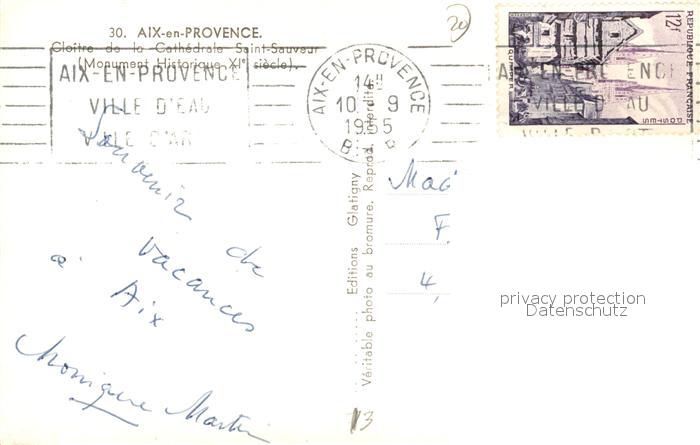 30. AIX-en-PROVENCE.
Cloître de la Cathédrale Saint-Sauveur
(Monument Historique XIe siècle).
20
AIX-EN-PROVENCE
VILLE D'EAU
VILLE D'ART
AIX-EN-PROVENCE
14H
10-9
1955
REPUBLIQUE FRANÇAISE
12f
POSTES
QUIMPER
AIX-EN-PROVENCE
VILLE D'EAU
VILLE D'ART
Souvenir de
vacances
à Aix
Monique Martin
Editions Glatigny
Véritable photo au bromure. Reprod. interdite.
F.
4,
privacy protection
Datenschutz
13